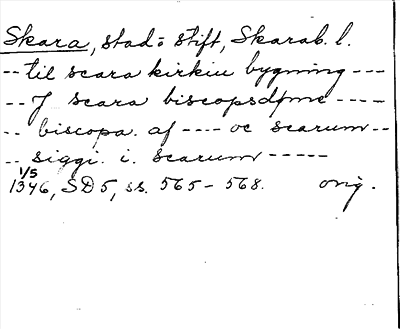 Skara, stad o stift, Skarab. l.
-- til scara kirkiu bygning ---
-- J scara biscopsdøme -----
-- biscopa. af ---- oc scarum --
-- siggi. i. scarum -----
1/5
1346, SD 5, ss. 565-568. orig.